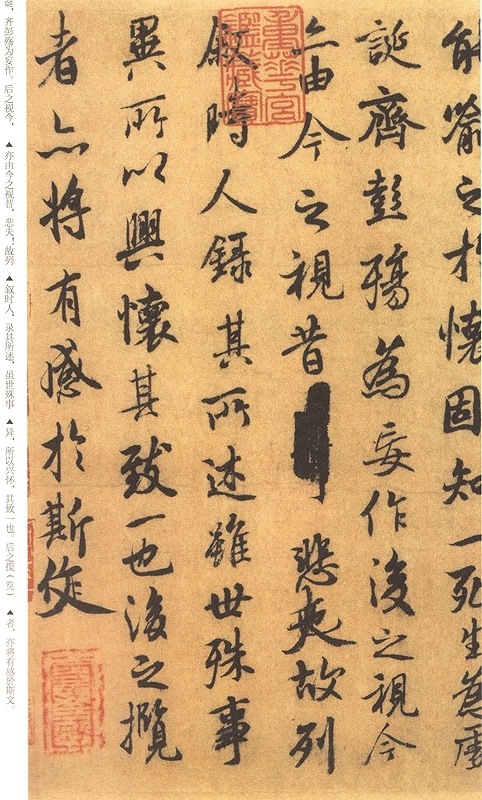 能喻之於懷固知一死生為虛
誕齊彭殤為妄作後之視今
亦由今之視昔悲夫故列
敘時人錄其所述雖世殊事
異所以興懷其致一也後之攬
者亦將有感於斯文
诞，齐彭殇为妄作。后之视今，▲亦由今之视昔，悲夫！故列▲叙时人，录其所述，虽世殊事▲异，所以兴怀，其致一也。后之揽（览）▲者，亦将有感於斯文。